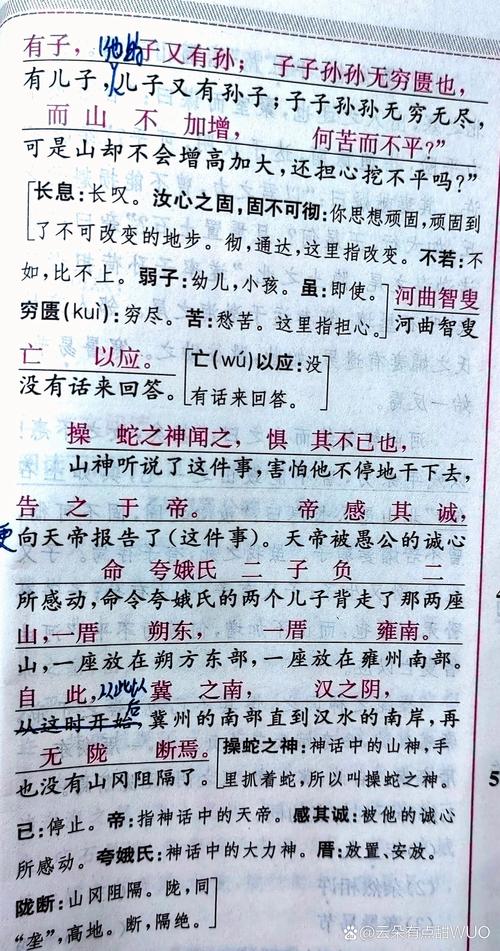 有子，他的子又有孙；子子孙孙无穷匮也，
有儿子，儿子又有孙子；子子孙孙无穷无尽，
而山不加增，何苦而不平？”
可是山却不会增高加大，还担心挖不平吗？”
长息：长叹。汝心之固，固不可彻：你思想顽固，顽固到
了不可改变的地步。彻，通达，这里指改变。不若：不
如，比不上。弱子：幼儿，小孩。虽：即使。河曲智叟
穷匮(kuì)：穷尽。苦：愁苦。这里指担心。河曲智叟
亡以应。
没有话来回答。
亡(wú)以应：没
有话来回答。
操蛇之神闻之，惧其不已也，
山神听说了这件事，害怕他不停地干下去，
告之于帝。帝感其诚，
更向天帝报告了(这件事)。天帝被愚公的诚心
命夸娥氏二子负二
所感动，命令夸娥氏的两个儿子背走了那两座
山，一厝朔东，一厝雍南。
山，一座放在朔方东部，一座放在雍州南部。
自此，从此以后冀之南，汉之阴，
从这时开始，冀州的南部直到汉水的南岸，再
无陇断焉。
也没有山冈阻隔了。
操蛇之神：神话中的山神，手
里抓着蛇，所以叫操蛇之神。
已：停止。帝：指神话中的天帝。感其诚：被他的诚心
所感动。夸娥氏：神话中的大力神。厝：放置、安放。
陇断：山冈阻隔。陇，同
“垄”，高地。断，隔绝。
5
@云朵有点甜WUO